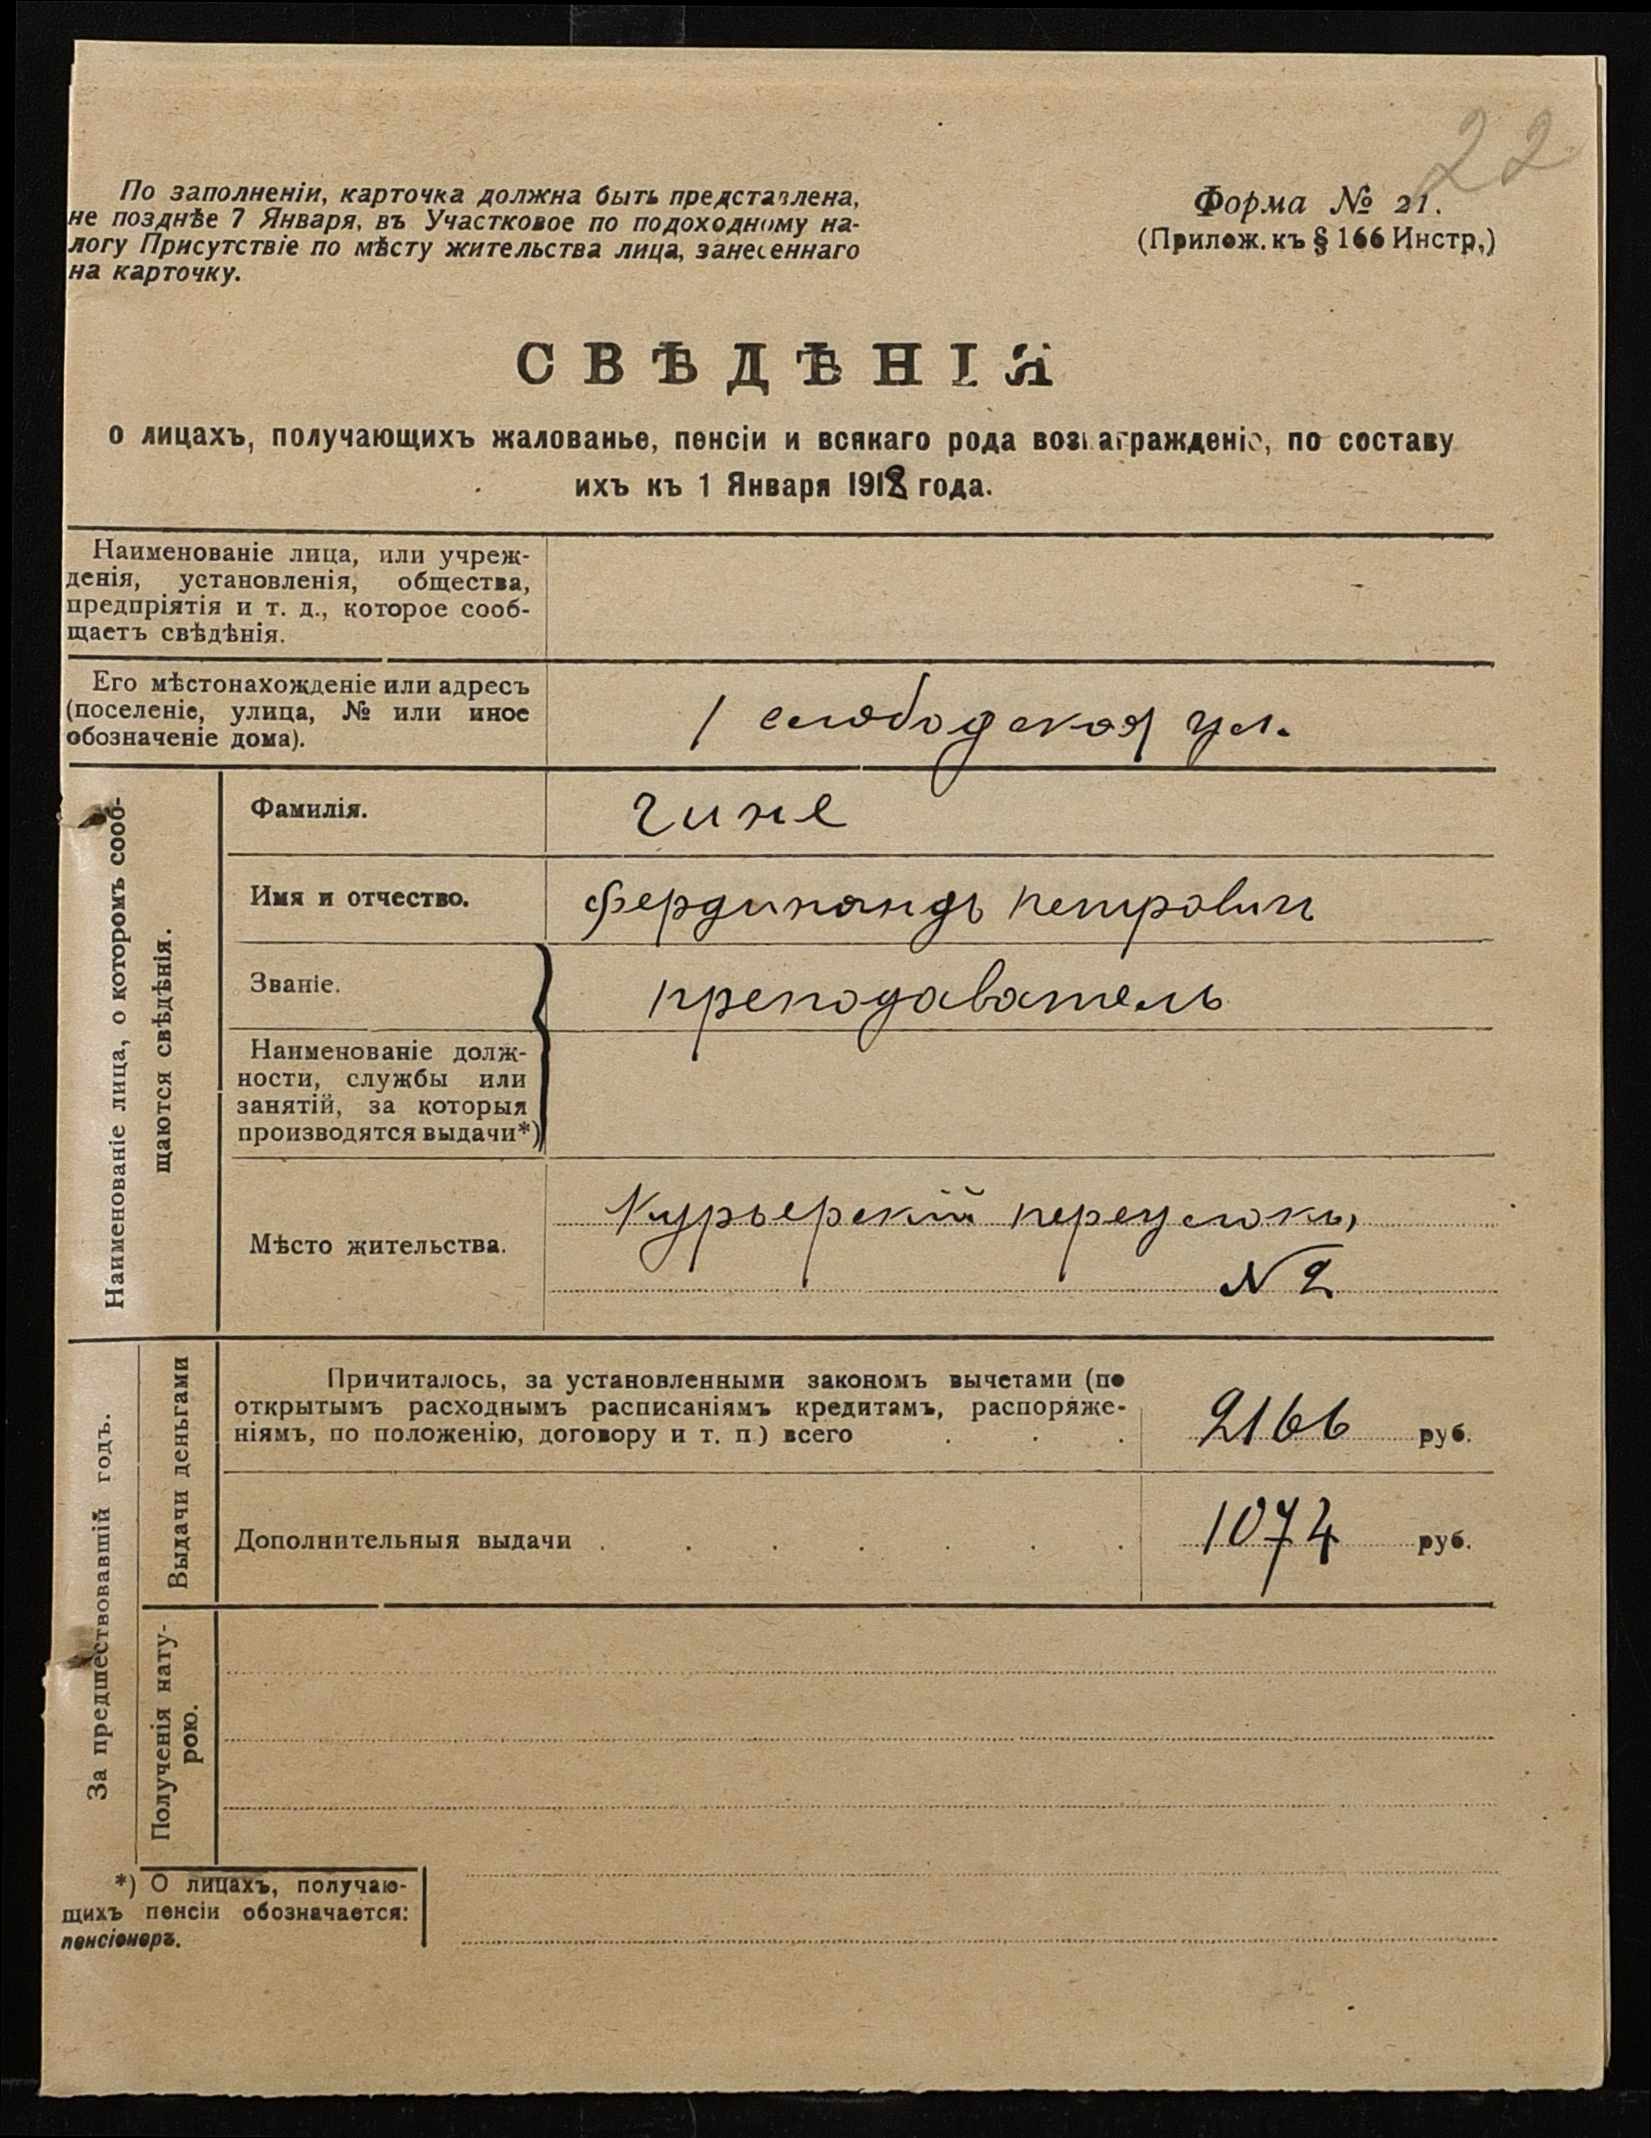 22
По заполненіи, карточка должна быть представлена,
не позднѣе 7 Января, въ Участковое по подоходному на-
логу Присутствіе по мѣсту жительства лица, занесеннаго
на карточку.
Форма № 21.
(Прилож. къ § 166 Инстр.)
СВѢДѢНІЯ
о лицахъ, получающихъ жалованье, пенсіи и всякаго рода вознагражденіе, по составу
ихъ къ 1 Января 1918 года.
Наименованіе лица, или учреж-
денія, установленія, общества,
предпріятія и т. д., которое сооб-
щаетъ свѣдѣнія.
Его мѣстонахожденіе или адресъ
(поселеніе, улица, № или иное
обозначеніе дома).
1 слободская ул.
Наименованіе лица, о которомъ сооб-
щаются свѣдѣнія.
Фамилія.
Гине
Имя и отчество.
Фердинандъ Петрович
Званіе.
преподаватель
Наименованіе долж-
ности, службы или
занятій, за которыя
производятся выдачи*)
Мѣсто жительства.
Курьерскій переулокъ,
№ 2
За предшествовавшій годъ.
Выдачи деньгами
Причиталось, за установленными закономъ вычетами (по
открытымъ расходнымъ расписаніямъ кредитамъ, распоряже-
ніямъ, по положенію, договору и т. п.) всего . . .
2166 руб.
Дополнительныя выдачи . . . . . . .
1074 руб.
Полученія нату-
рою.
*) О лицахъ, получаю-
щихъ пенсіи обозначается:
пенсіонеръ.